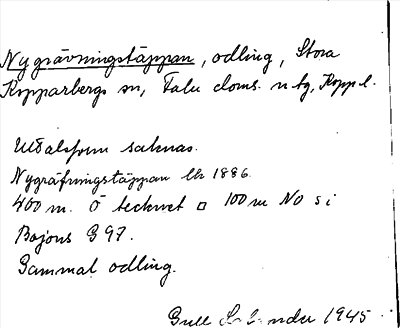 Nygrävningstäppan, odling, Stora
Kopparbergs sn, Falu doms. n tg, Kopp l.
Uttalsform saknas.
Nygräfningstäppan lk 1886.
400 m. Ö tecknet □ 100 m NO s i
Bojons G 97.
Gammal odling.
1945